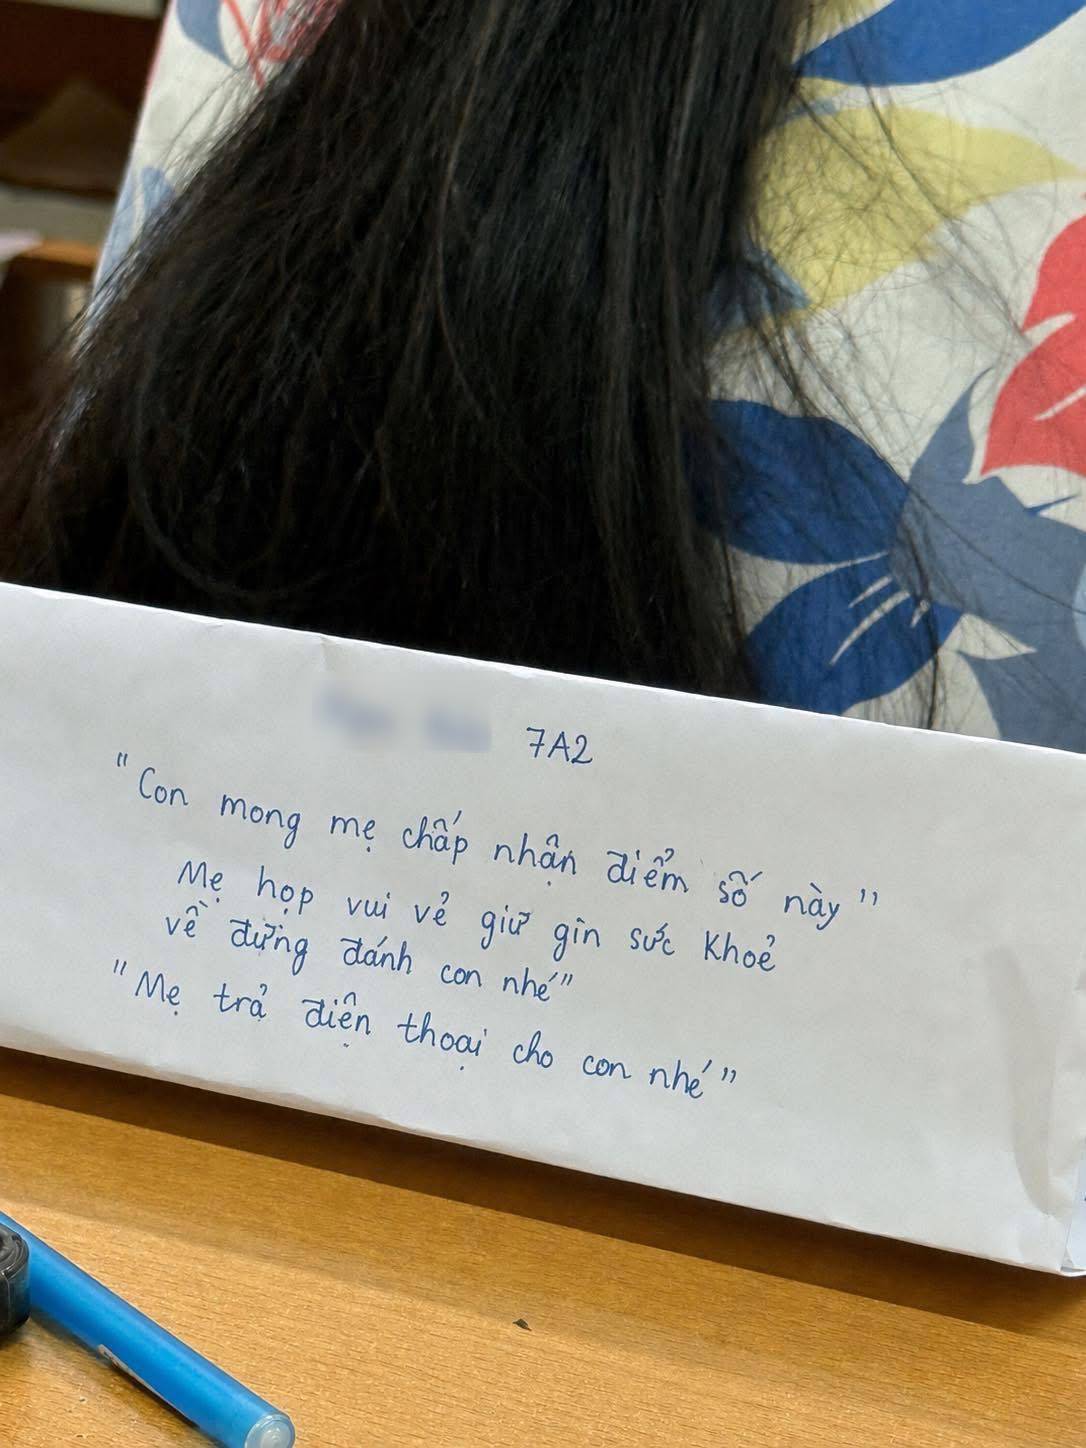 7A2
"Con mong mẹ chấp nhận điểm số này"
Mẹ họp vui vẻ giữ gìn sức khoẻ
về đừng đánh con nhé"
"Mẹ trả điện thoại cho con nhé"